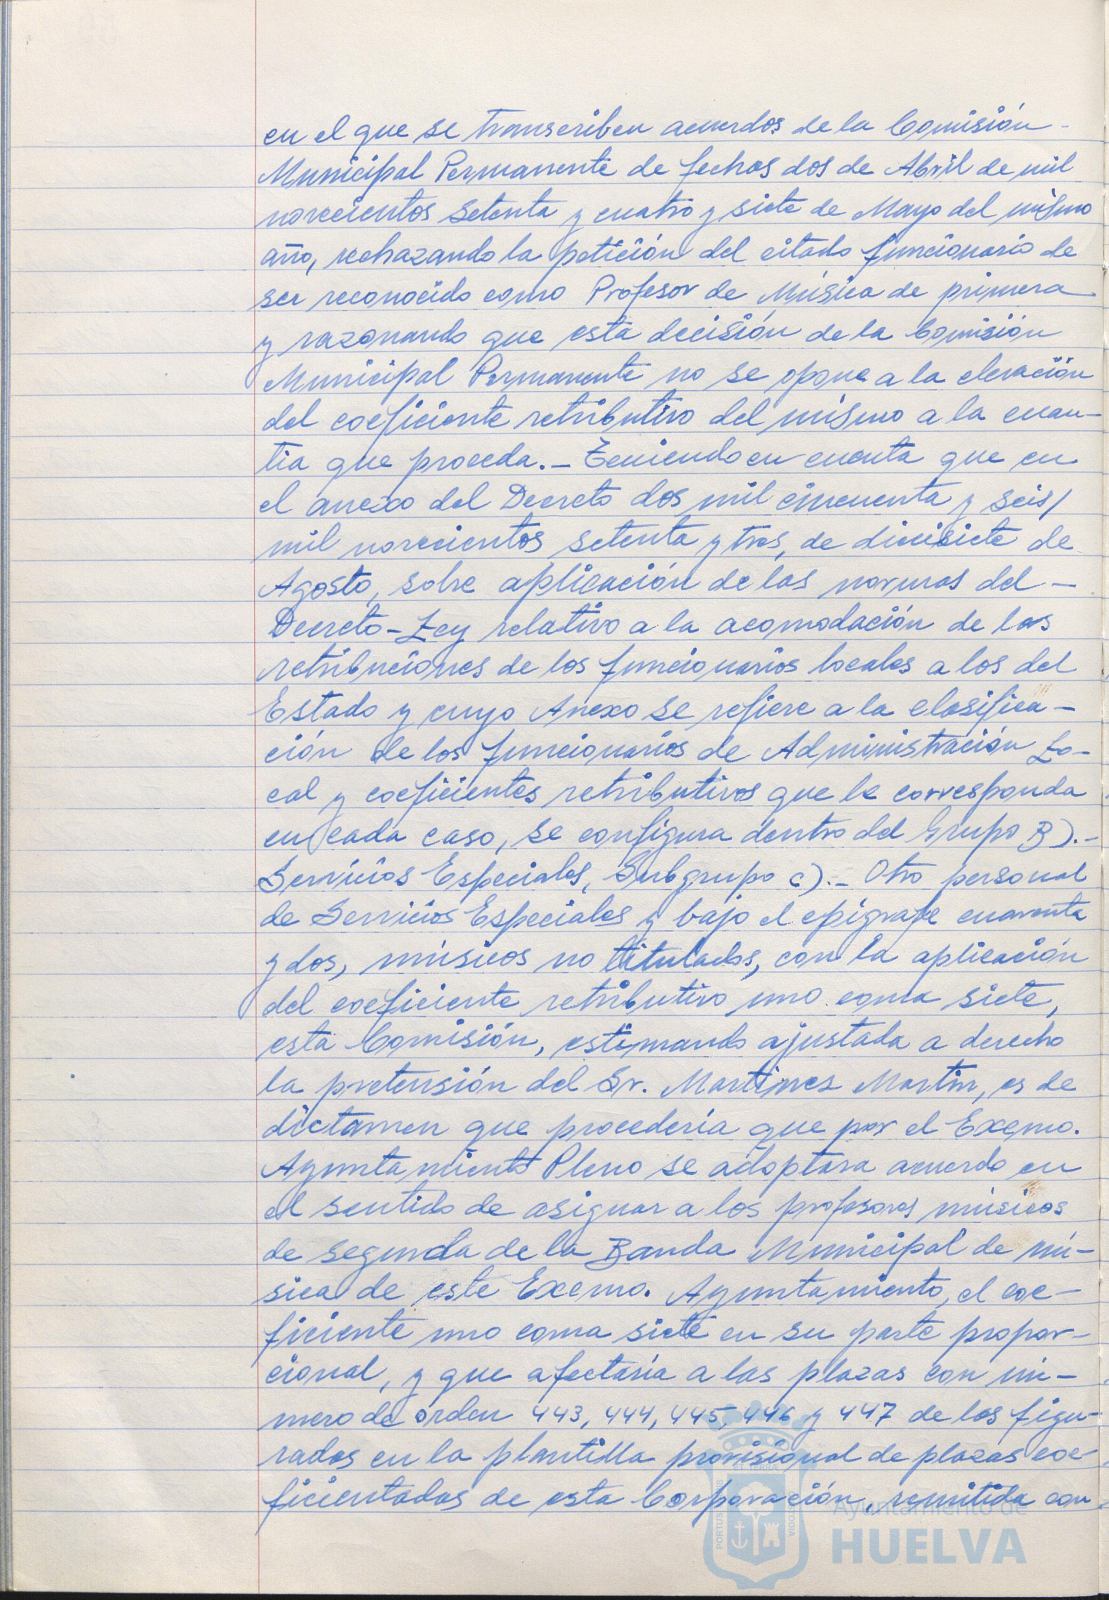 en el que se transcriben acuerdos de la Comisión
Municipal Permanente de fechas dos de Abril de mil
novecientos setenta y cuatro y siete de Mayo del mismo
año, rechazando la petición del citado funcionario de
ser reconocido como Profesor de Música de primera
y razonando que esta decisión de la Comisión
Municipal Permanente no se opone a la elevación
del coeficiente retributivo del mismo a la cuan-
tia que proceda.- Teniendo en cuenta que en
el anexo del Decreto dos mil cincuenta y seis/
mil novecientos setenta y tres, de diecisiete de
Agosto, sobre aplicación de las normas del -
Decreto-Ley relativo a la acomodación de las
retribuciones de los funcionarios locales a los del
Estado y cuyo Anexo se refiere a la clasifica-
ción de los funcionarios de Administración Lo-
cal y coeficientes retributivos que le corresponda
en cada caso, se configura dentro del Grupo B).-
Servicios Especiales, Subgrupo c).- Otro personal
de Servicios Especiales y bajo el epígrafe cuarenta
y dos, músicos no titulados, con la aplicación
del coeficiente retributivo uno coma siete,
esta Comisión, estimando ajustada a derecho
la pretensión del Sr. Martines Martin, es de
dictamen que procedería que por el Excmo.
Ayuntamiento Pleno se adoptara acuerdo en
el sentido de asignar a los profesores músicos
de segunda de la Banda Municipal de mú-
sica de este Excmo. Ayuntamiento, el coe-
ficiente uno coma siete en su parte propor-
cional, y que afectaría a las plazas con nú-
mero de orden 443, 444, 445, 446 y 447 de los figu-
rados en la plantilla provisional de plazas coe-
ficientadas de esta Corporación, remitida con
Ayuntamiento de
HUELVA